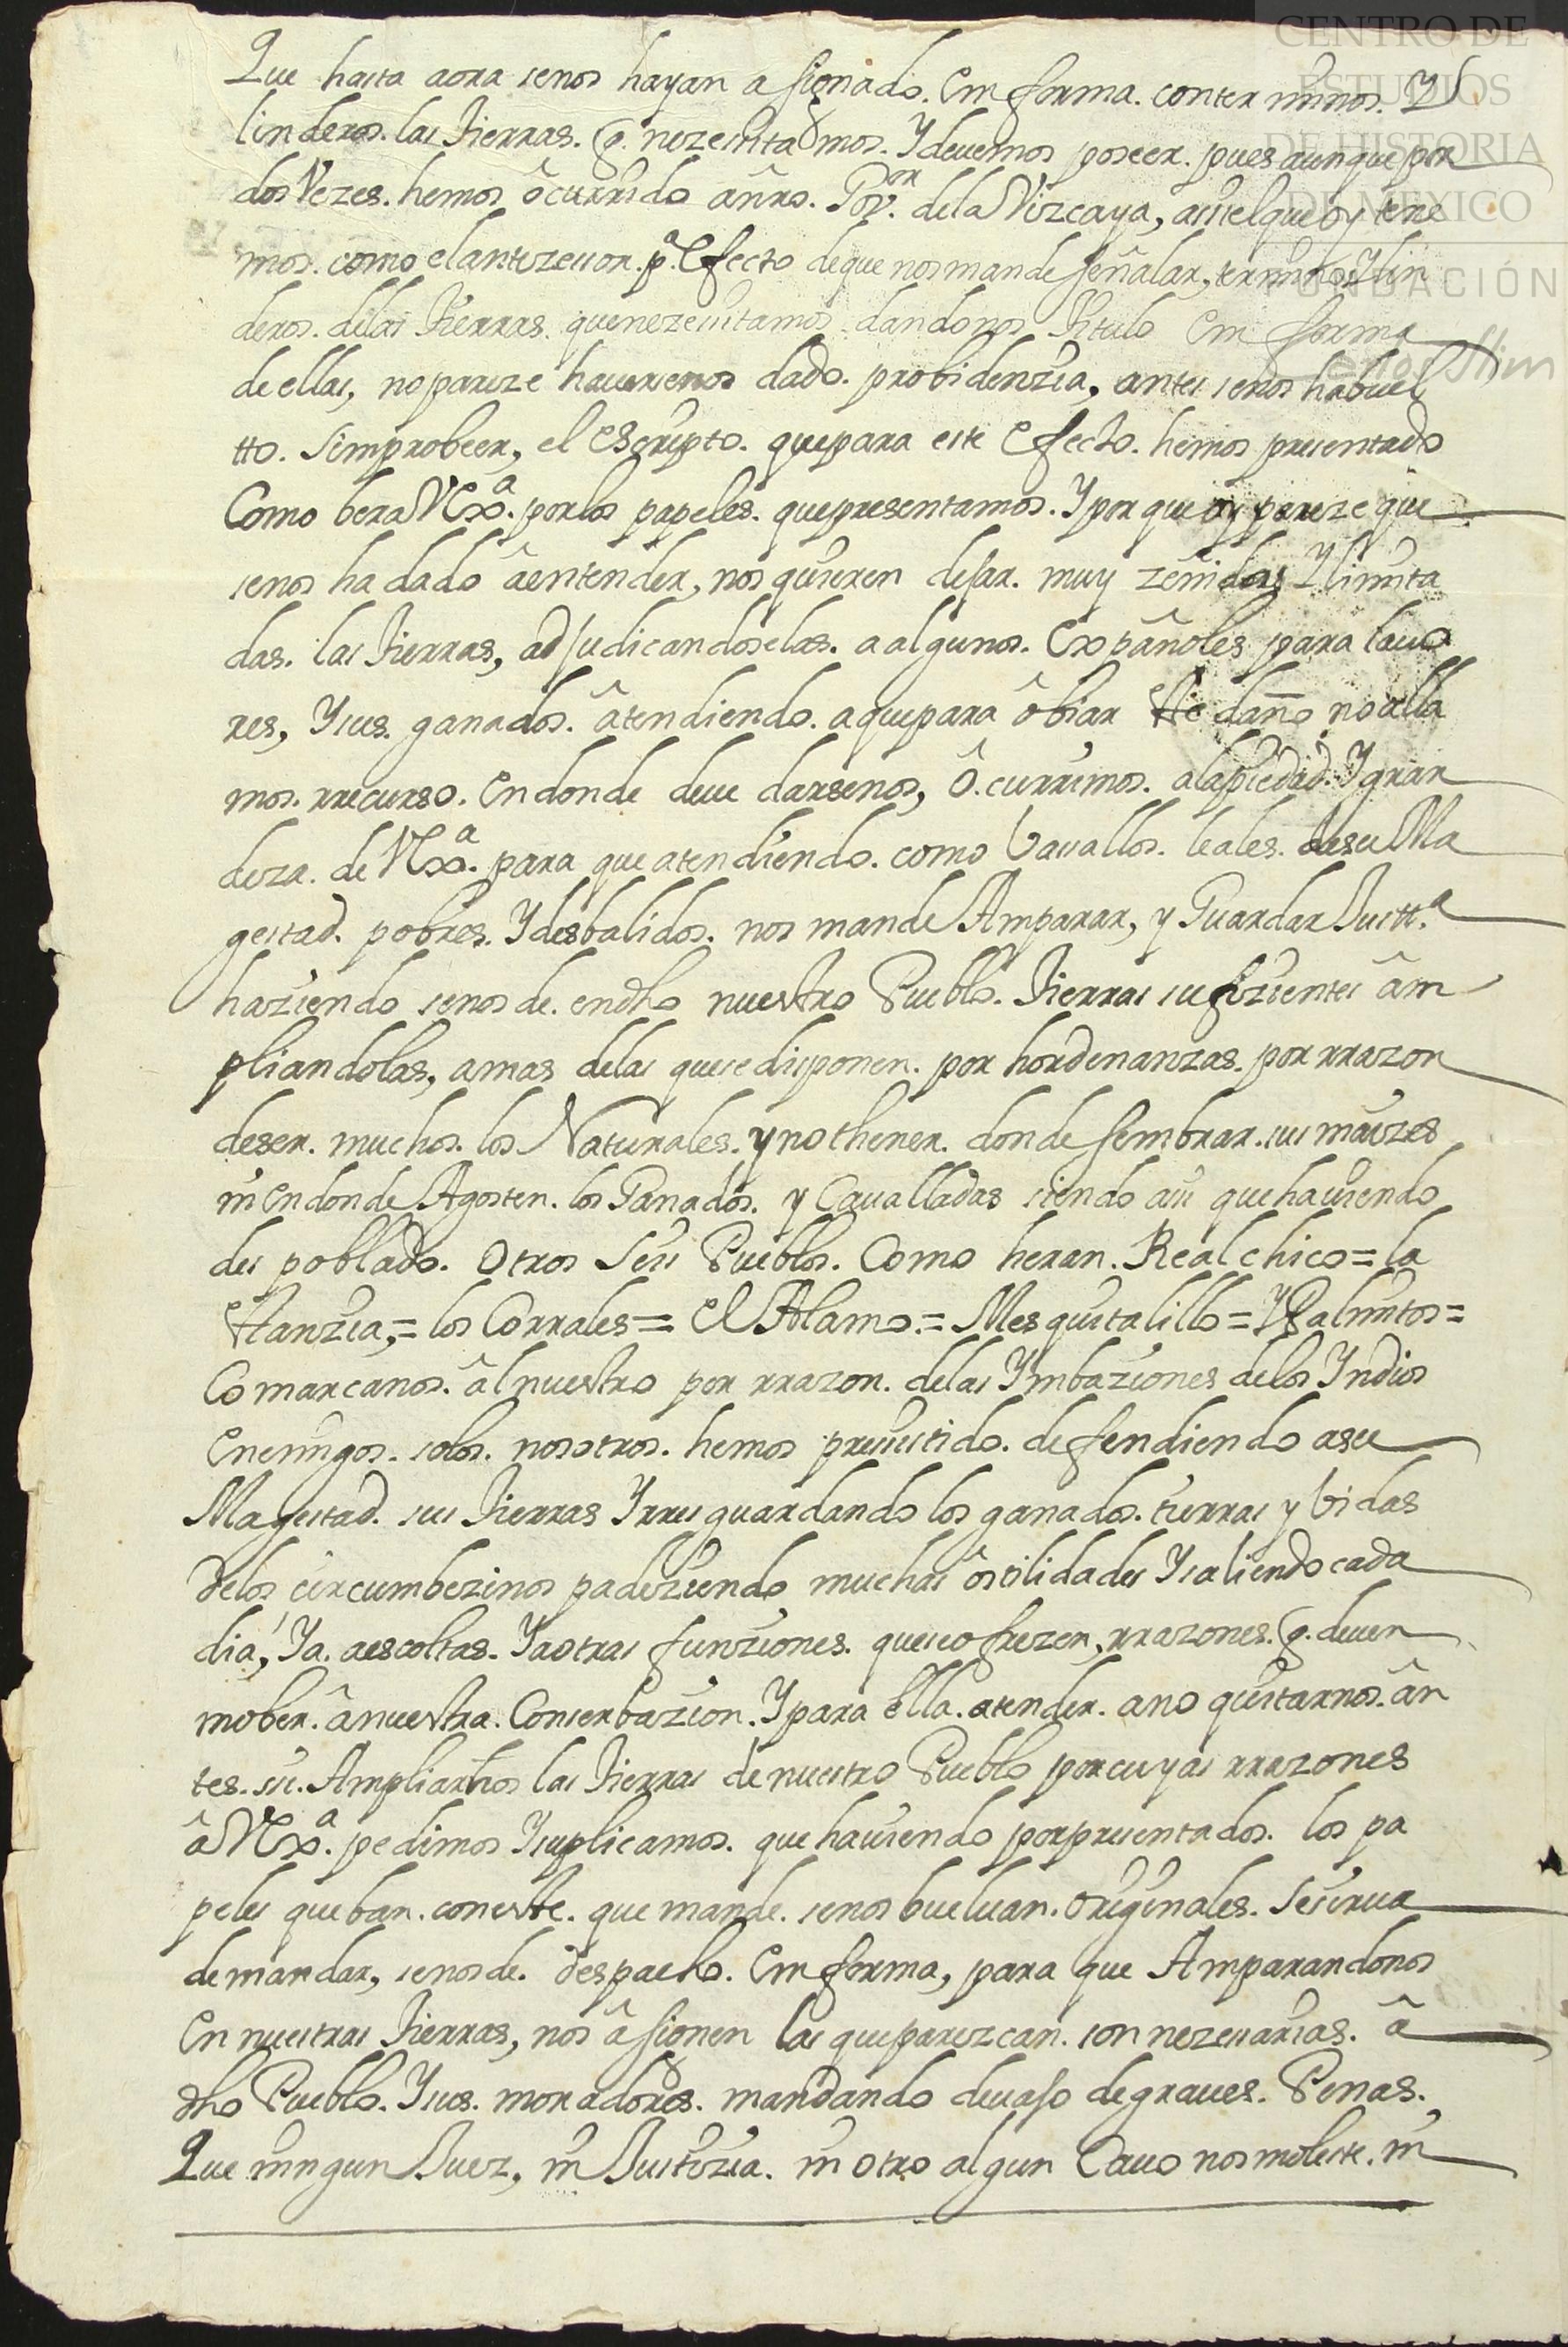 Que hasta aora senos hayan a signado. Em forma. conter minos. Y
linderos. las Tierras. q. nezesita mos. Y devemos poseer. pues aunque por
dos Vezes. hemos ôcurrido añro. Gov.or dela Vizcaya, assi el que oy tene
mos. como el antezesor. pa. Efecto de que nos mande señalar, terminos Y lin
deros. delas Tierras. que nezesitamos. dandonos Titulo Em forma
de ellas, no pareze haversenos dado. probidenzia, antes senos ha buel
tto. Sim probeer, el Escripto. que para este Efecto. hemos presentado
Como bera VExa. por los papeles. que presentamos. Y por que oy pareze que
senos ha dado âentender, nos quieren dejar. muy zeñidas Y limita
das. las Tierras, adjudicandoselas. a algunos. Españoles para lavo
res, Y sus. ganados. âtendiendo. a que para ôbiar este daño no alla
mos. rrecurso. En donde deve darsenos, ô.currimos. a la piedad. Y gran
deza. de VExa. para que atendiendo. como Vasallos. leales. de su Ma
gestad. pobres. Y desbalidos. nos mande Amparar, y Guardar Justt.a
haziendo senos de. en dho nuestro Pueblo. Tierras sufizientes âm
pliandolas, a mas delas que se disponen. por hordenanzas. por rrazon
de ser. muchos. los Naturales. y no thener. donde sembrar. sus maizes
ni en donde Agosten. los Ganados. y Cavalladas siendo assi que haviendo
des poblado. Otros Seis Pueblos. Como heran. Real chico = la
Estanzia, = los Corrales = El Alamo. = Mesquitalillo = Y Palmitos =
Comarcanos. âl nuestro por rrazon. delas Ymbaziones delos Yndios
Enemigos. solos. nosotros. hemos presistido. defendiendo a su
Magestad. sus Tierras Y rres guardando los ganados. tierras y bidas
delos circumbezinos padeziendo muchas ôstilidades Y saliendo cada
dia, Ya. aescoltas. Y a otras funziones. que se ofrezen, rrazones. q. deven
mober. ânuestra. Conserbazion. Y para êlla. atender. ano quitarnos. ân
tes. si. Ampliarnos las Tierras de nuestro Pueblo por cuyas rrazones
â VExa. pedimos Y suplicamos. que haviendo por presentados. los pa
peles que ban. con este. que mande. senos buelvan. Originales. Se sirva
de mandar, senos de. despacho. Em forma, para que Amparandonos
En nuestras Tierras, nos âsignen las que parezcan. son nezesarias. â
dho Pueblo. Y sus. moradores. mandando devajo de graves. Penas.
Que ningun Juez, ni Justizia. ni otro algun Cavo nos moleste. ni
CENTRO DE
ESTUDIOS
DE HISTORIA
DE MÉXICO
FUNDACIÓN
Carlos Slim